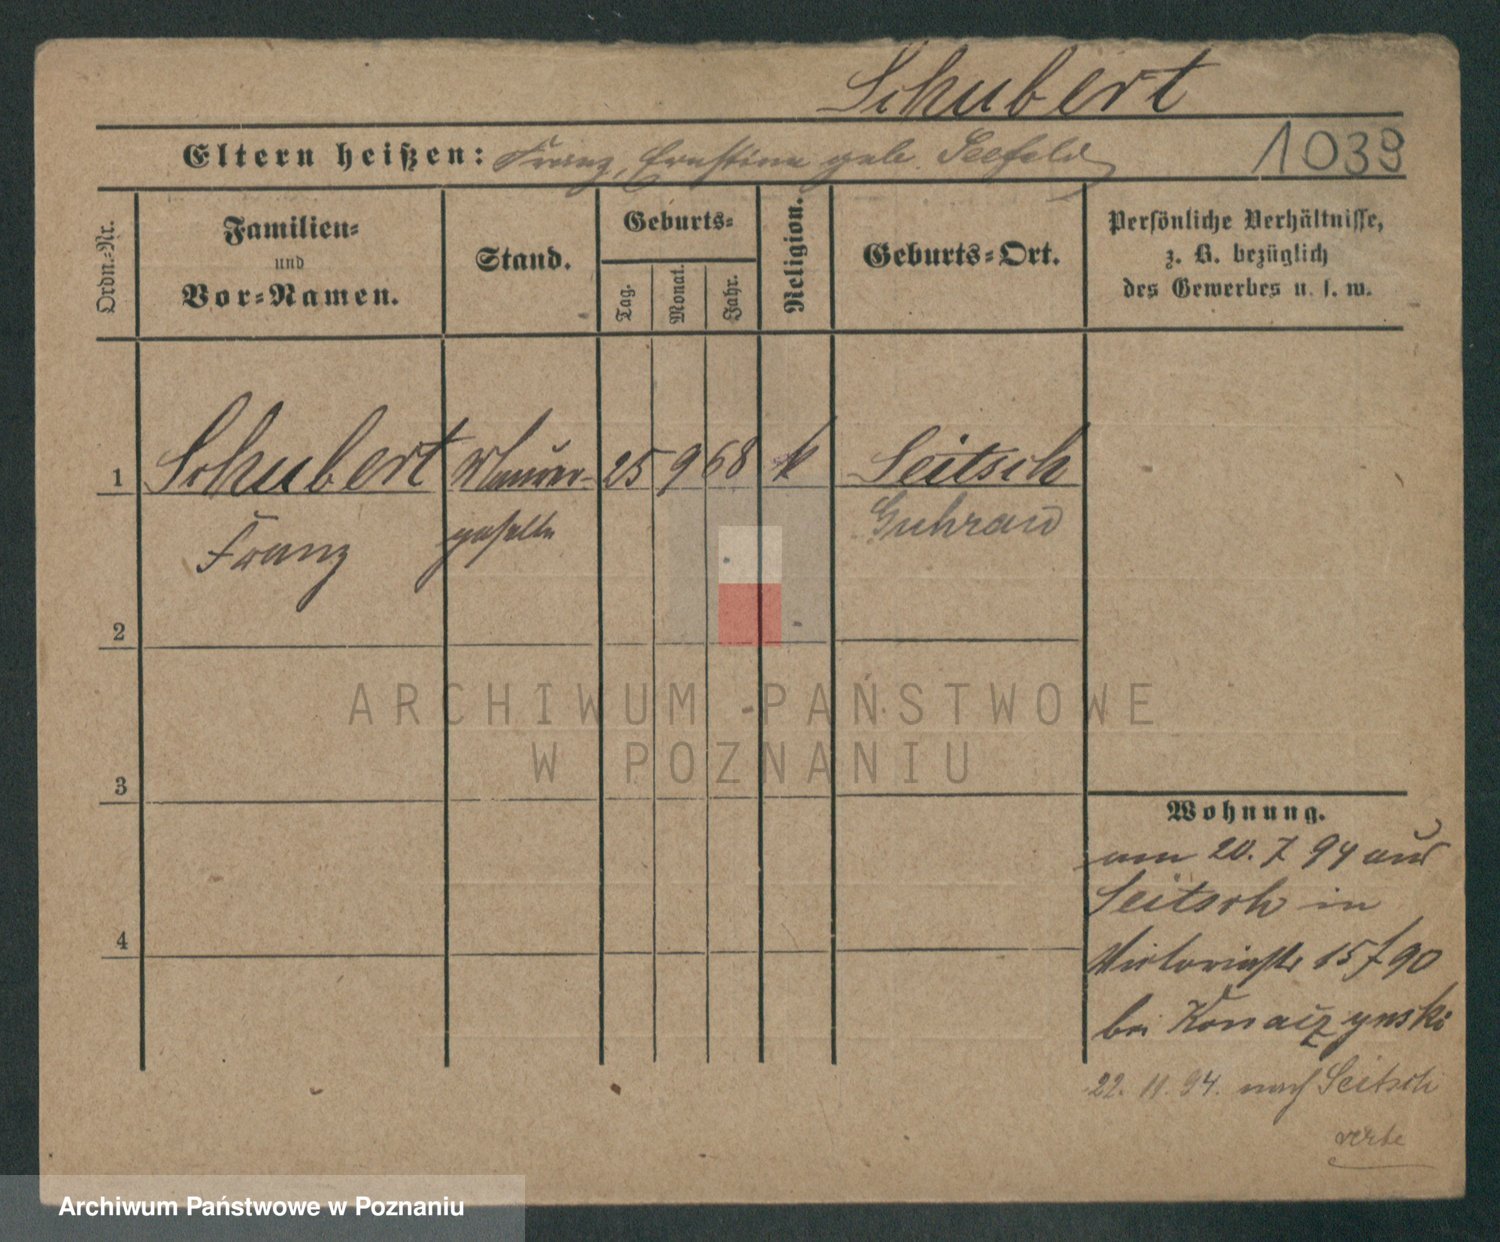 Schubert
Eltern heißen: Franz, Ernstine geb. Seefeld
1039
Ordn.-Nr.
Familien-
und
Vor-Namen.
Stand.
Geburts-
Tag.
Monat.
Jahr.
Religion.
Geburts-Ort.
Persönliche Verhältnisse,
z. B. bezüglich
des Gewerbes u. s. w.
1 Schubert Maurer- 25 9 68 k Seitsch
Franz geselle Guhrau
2
3
4
ARCHIWUM PAŃSTWOWE
W POZNANIU
Wohnung.
am 20. 7 94 aus
Seitsch in
Victoriastr 15 / 90
bei
22. 11. 94. nach Seitsch
verte
Archiwum Państwowe w Poznaniu